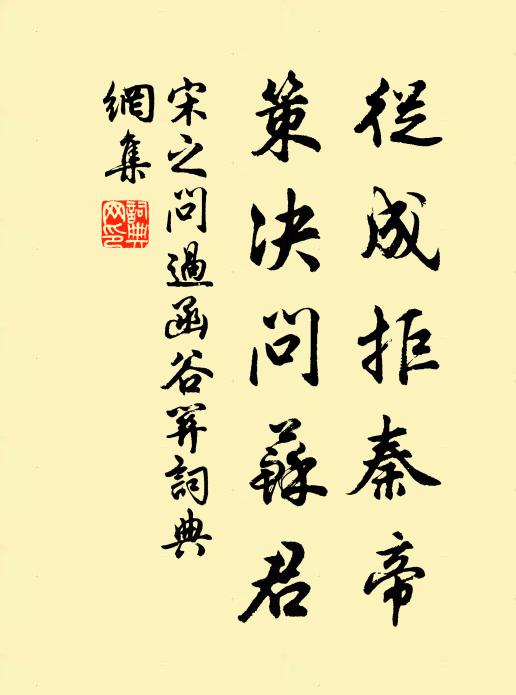 從成拒秦帝
策決問蘇君
宋之問過函谷関詞典
網集
詞典
网印